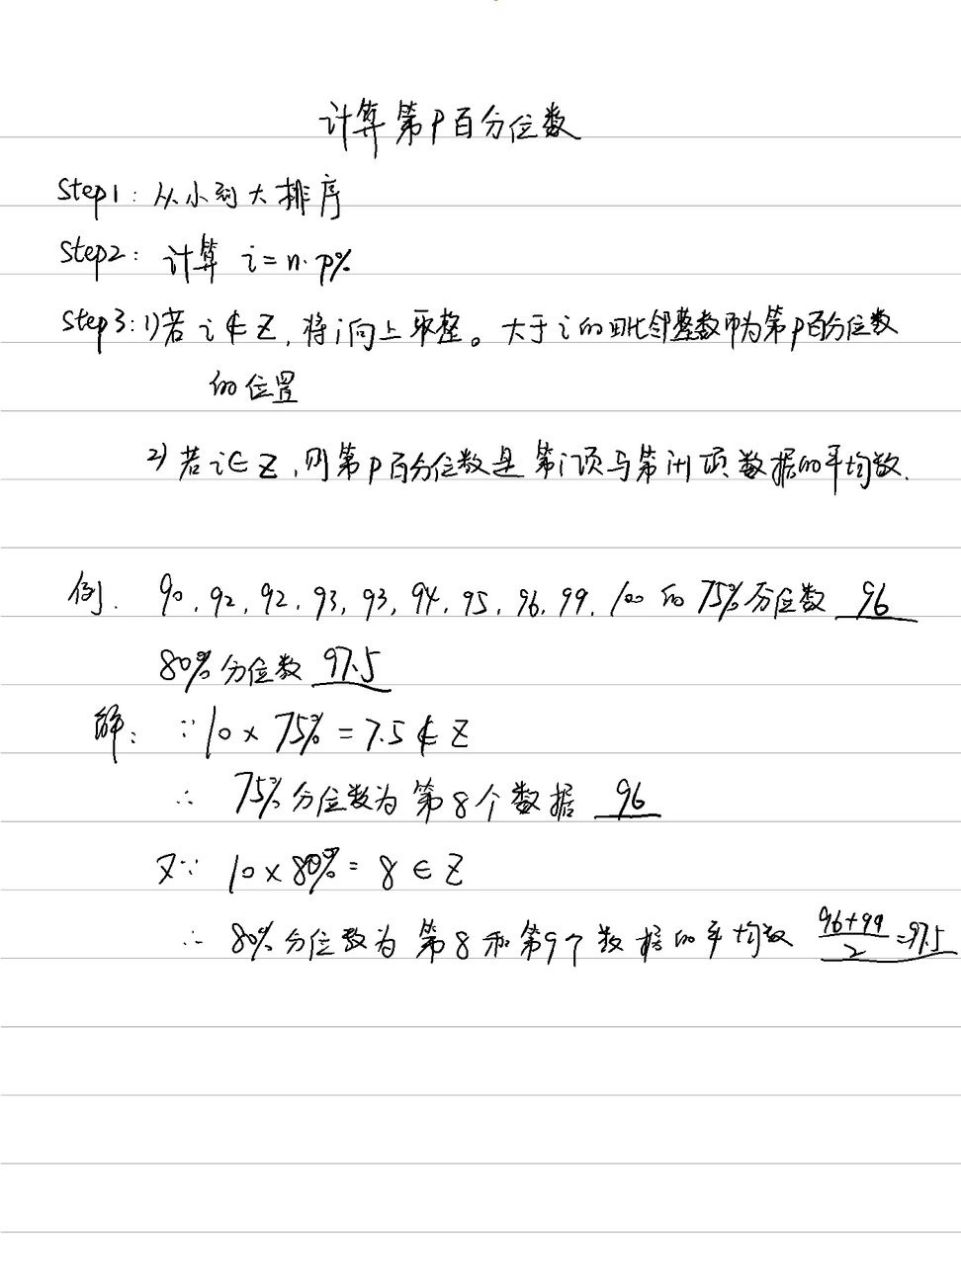 计算第P百分位数
Step1: 从小到大排序
Step2: 计算 i=n·p%
Step3: 1)若 i∉Z, 将i向上取整。大于i的毗邻整数即为第p百分位数
的位置
2) 若 i∈Z, 则第p百分位数是 第i项与第i+1项 数据的平均数.
例. 90, 92, 92, 93, 93, 94, 95, 96, 99, 100 的 75%分位数 96
80%分位数 97.5
解: ∵10×75%=7.5∉Z
∴ 75%分位数为 第8个数据 96
又∵ 10×80%=8∈Z
∴ 80%分位数为 第8和第9个数据的平均数 (96+99)/2=97.5